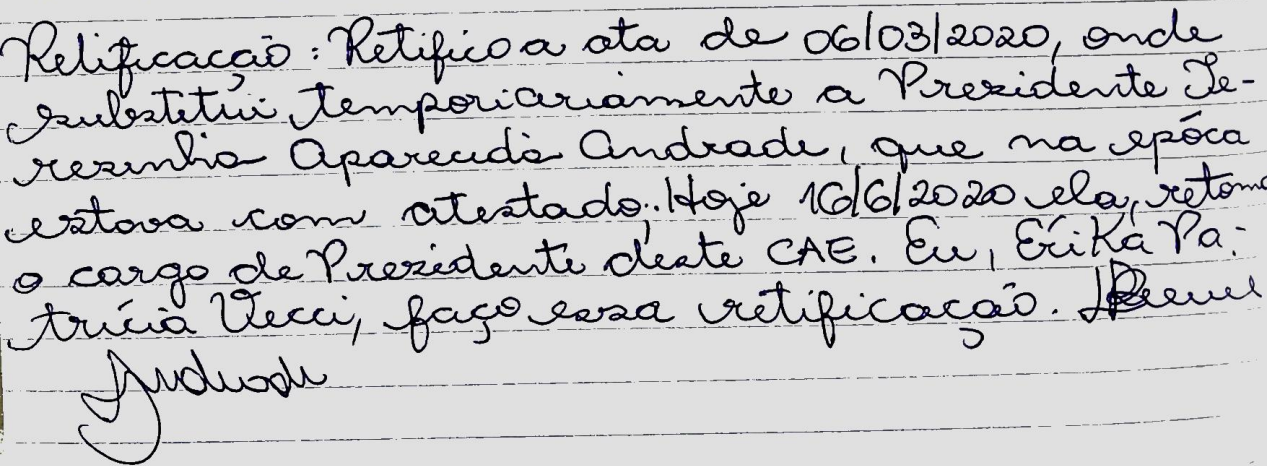 Retificação: Retifico a ata de 06/03/2020, onde
substitúi temporiariamente a Presidente Te-
rezinha Aparecida Andrade, que na epóca
estava com atestado. Hoje 16/6/2020 ela, retoma
o cargo de Presidente deste CAE. Eu, Érika Pa-
trícia Vecci, faço essa retificação.
Andrade